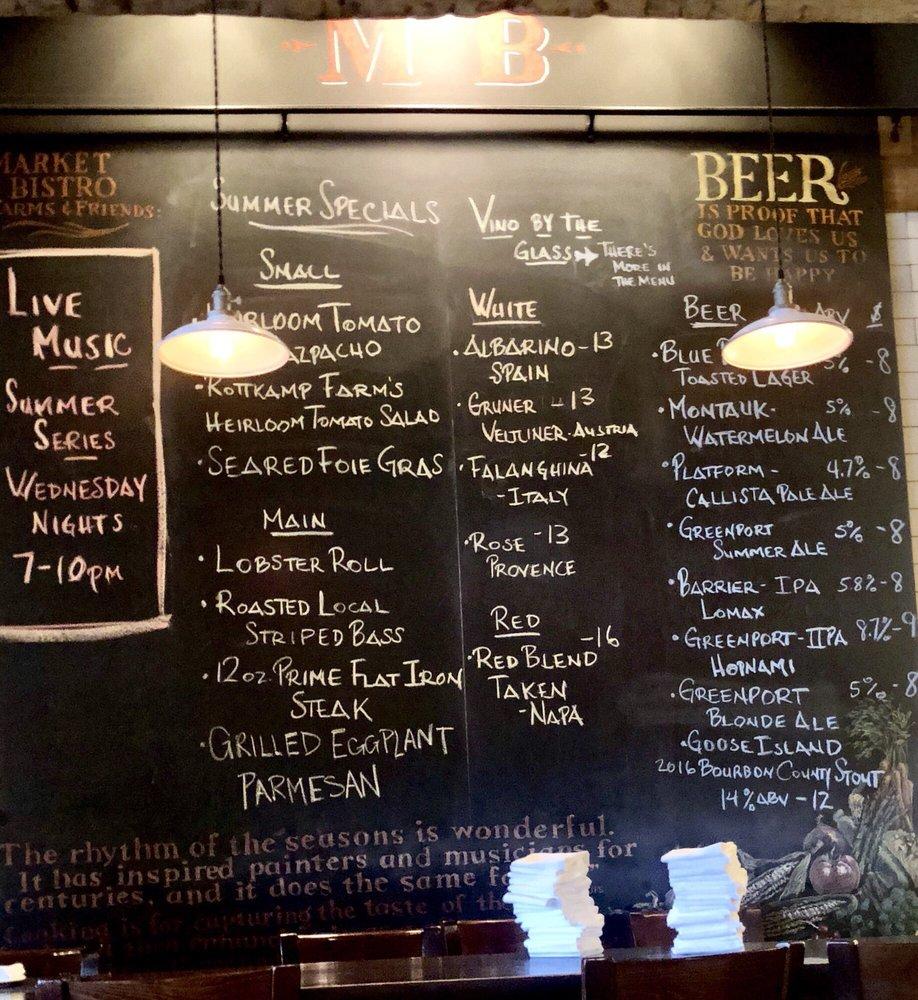 M B
MARKET
BISTRO
FARMS & FRIENDS:
LIVE
MUSIC
SUMMER
SERIES
WEDNESDAY
NIGHTS
7-10PM
SUMMER SPECIALS
SMALL
TOMATO
ROTTKAMP FARM'S
HEIRLOOM TOMATO SALAD
SEARED FOIE GRAS
MAIN
LOBSTER ROLL
ROASTED LOCAL
STRIPED BASS
12 OZ. PRIME FLAT IRON
STEAK
GRILLED EGGPLANT
PARMESAN
VINO BY THE
GLASS THERE'S
MORE IN
THE MENU
WHITE
ALBARINO - 13
SPAIN
GRUNER - 13
VELTLINER - AUSTRIA
FALANGHINA - 12
- ITALY
ROSE - 13
PROVENCE
RED
RED BLEND - 16
TAKEN
- NAPA
BEER
IS PROOF THAT
GOD LOVES US
& WANTS US TO
BE HAPPY
BEER ABV $
BLUE 5% - 8
TOASTED LAGER
MONTAUK - 5% - 8
WATERMELON ALE
PLATFORM - 4.7% - 8
CALLISTA PALE ALE
GREENPORT 5% - 8
SUMMER ALE
BARRIER - IPA 5.8% - 8
LOMAX
GREENPORT - IIPA 8.7% - 9
HOPNAMI
GREENPORT 5% - 8
BLONDE ALE
GOOSE ISLAND
2016 BOURBON COUNTY STOUT
14% ABV - 12
The rhythm of the seasons is wonderful.
It has inspired painters and musicians for
centuries, and it does the same
Cooking is for capturing the taste of the